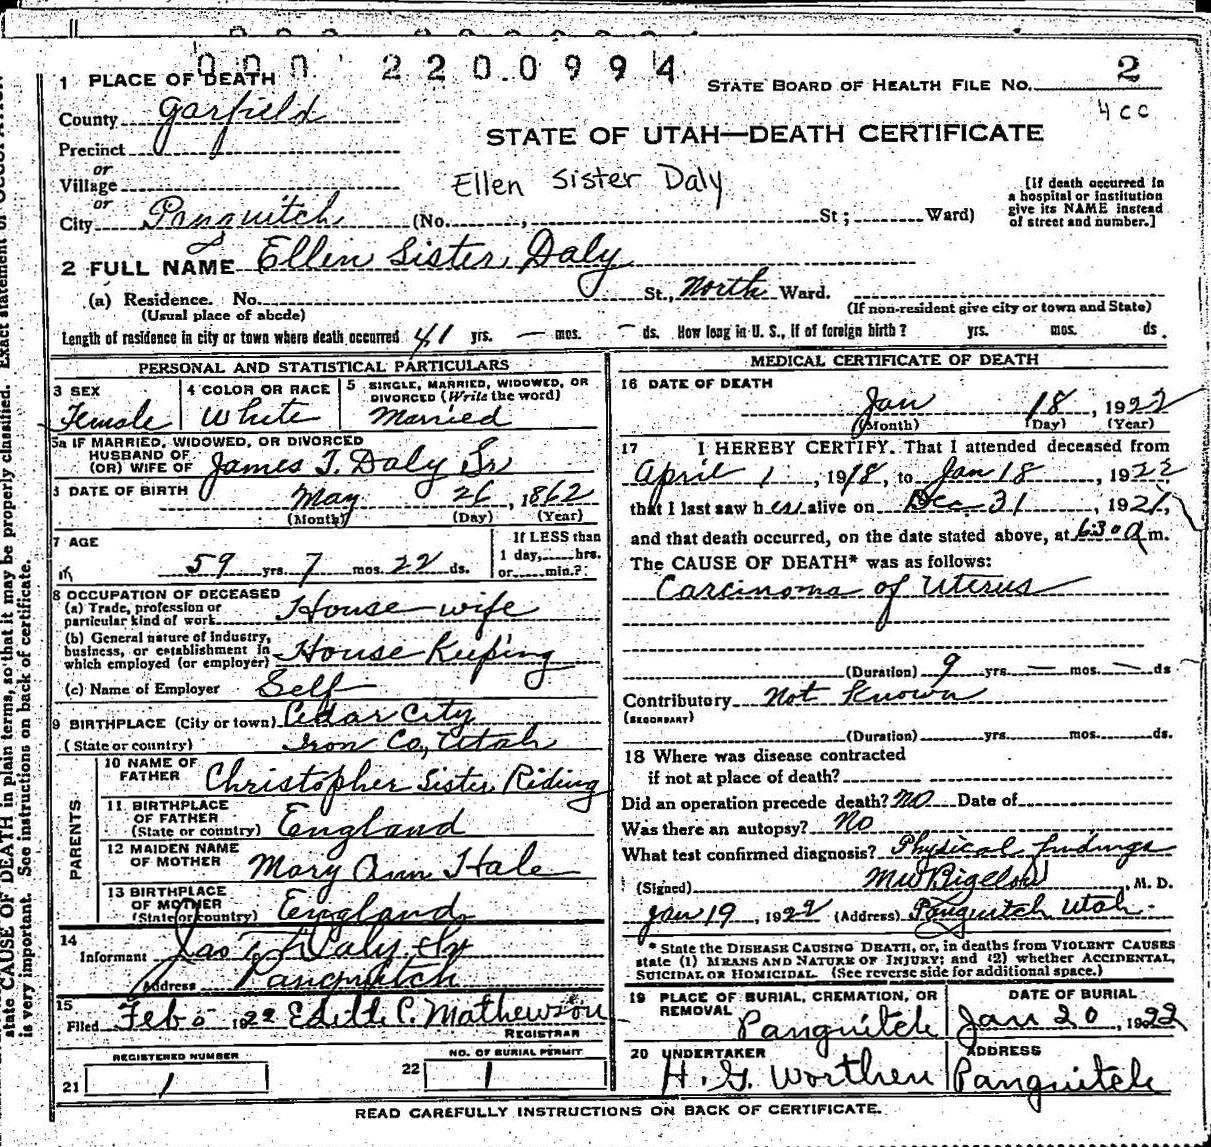 000 220.0994
1 PLACE OF DEATH
STATE BOARD OF HEALTH FILE NO. 2
4 cc
County Garfield
STATE OF UTAH—DEATH CERTIFICATE
Precinct
or
Village
Ellen Sister Daly
[If death occurred in a hospital or institution give its NAME instead of street and number.]
or
City Panguitch (No. , St; Ward)
2 FULL NAME Ellen Sister Daly
(a) Residence. No. St., North Ward.
(Usual place of abode)
(If non-resident give city or town and State)
Length of residence in city or town where death occurred 41 yrs. — mos. — ds. How long in U. S., if of foreign birth? yrs. mos. ds.
PERSONAL AND STATISTICAL PARTICULARS
3 SEX
Female
4 COLOR OR RACE
White
5 SINGLE, MARRIED, WIDOWED, OR
DIVORCED (Write the word)
Married
5a IF MARRIED, WIDOWED, OR DIVORCED
HUSBAND OF
(OR) WIFE OF James T. Daly Sr
DATE OF BIRTH May 26, 1862
(Month) (Day) (Year)
7 AGE
59 yrs. 7 mos. 22 ds.
If LESS than
1 day, hrs.
or min.?
8 OCCUPATION OF DECEASED
(a) Trade, profession or
particular kind of work House wife
(b) General nature of industry,
business, or establishment in
which employed (or employer) House Keeping
(c) Name of Employer Self
9 BIRTHPLACE (City or town) Cedar City
(State or country) Iron Co, Utah
PARENTS
10 NAME OF
FATHER Christopher Sister Riding
11 BIRTHPLACE
OF FATHER
(State or country) England
12 MAIDEN NAME
OF MOTHER Mary Ann Hale
13 BIRTHPLACE
OF MOTHER
(State or country) England
14
Informant Jas T Daly Sr
Address Panguitch
15
Filed Feb 5 1922 Edith C. Mathewson
REGISTRAR
REGISTERED NUMBER
21 1
NO. OF BURIAL PERMIT
22 1
MEDICAL CERTIFICATE OF DEATH
16 DATE OF DEATH
Jan 18, 1922
(Month) (Day) (Year)
17 I HEREBY CERTIFY. That I attended deceased from
April 1, 1918, to Jan 18, 1922
that I last saw her alive on Dec 31, 1921,
and that death occurred, on the date stated above, at 630 a m.
The CAUSE OF DEATH* was as follows:
Carcinoma of Uterus
(Duration) 9 yrs. — mos. — ds
Contributory Not Known
(SECONDARY)
(Duration) yrs. mos. ds.
18 Where was disease contracted
if not at place of death?
Did an operation precede death? No Date of
Was there an autopsy? No
What test confirmed diagnosis? Physical findings
(Signed) MW Bigelow, M. D.
Jan 19, 1922 (Address) Panguitch Utah.
* State the DISEASE CAUSING DEATH, or, in deaths from VIOLENT CAUSES
state (1) MEANS AND NATURE OF INJURY; and (2) whether ACCIDENTAL,
SUICIDAL OR HOMICIDAL. (See reverse side for additional space.)
19 PLACE OF BURIAL, CREMATION, OR
REMOVAL Panguitch
DATE OF BURIAL
Jan 20, 1922
20 UNDERTAKER
H. G. Worthen
ADDRESS
Panguitch
READ CAREFULLY INSTRUCTIONS ON BACK OF CERTIFICATE.
state CAUSE OF DEATH in plain terms, so that it may be properly classified. Exact statement of
is very important. See instructions on back of certificate.